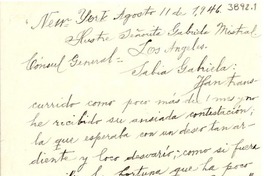 New York Agosto 11 de 1,946
3692.1
Ilustre Señorita Gabriela Mistral
Consul General = Los Angeles.
Sabia Gabriela:
Han trans-
currido como poco más del 1 mes, no
he recibido su ansiada contestación;
la que esperaba con un deseo tan ar-
diente y loco desvarío; como si fuera
la fortuna que ha poco